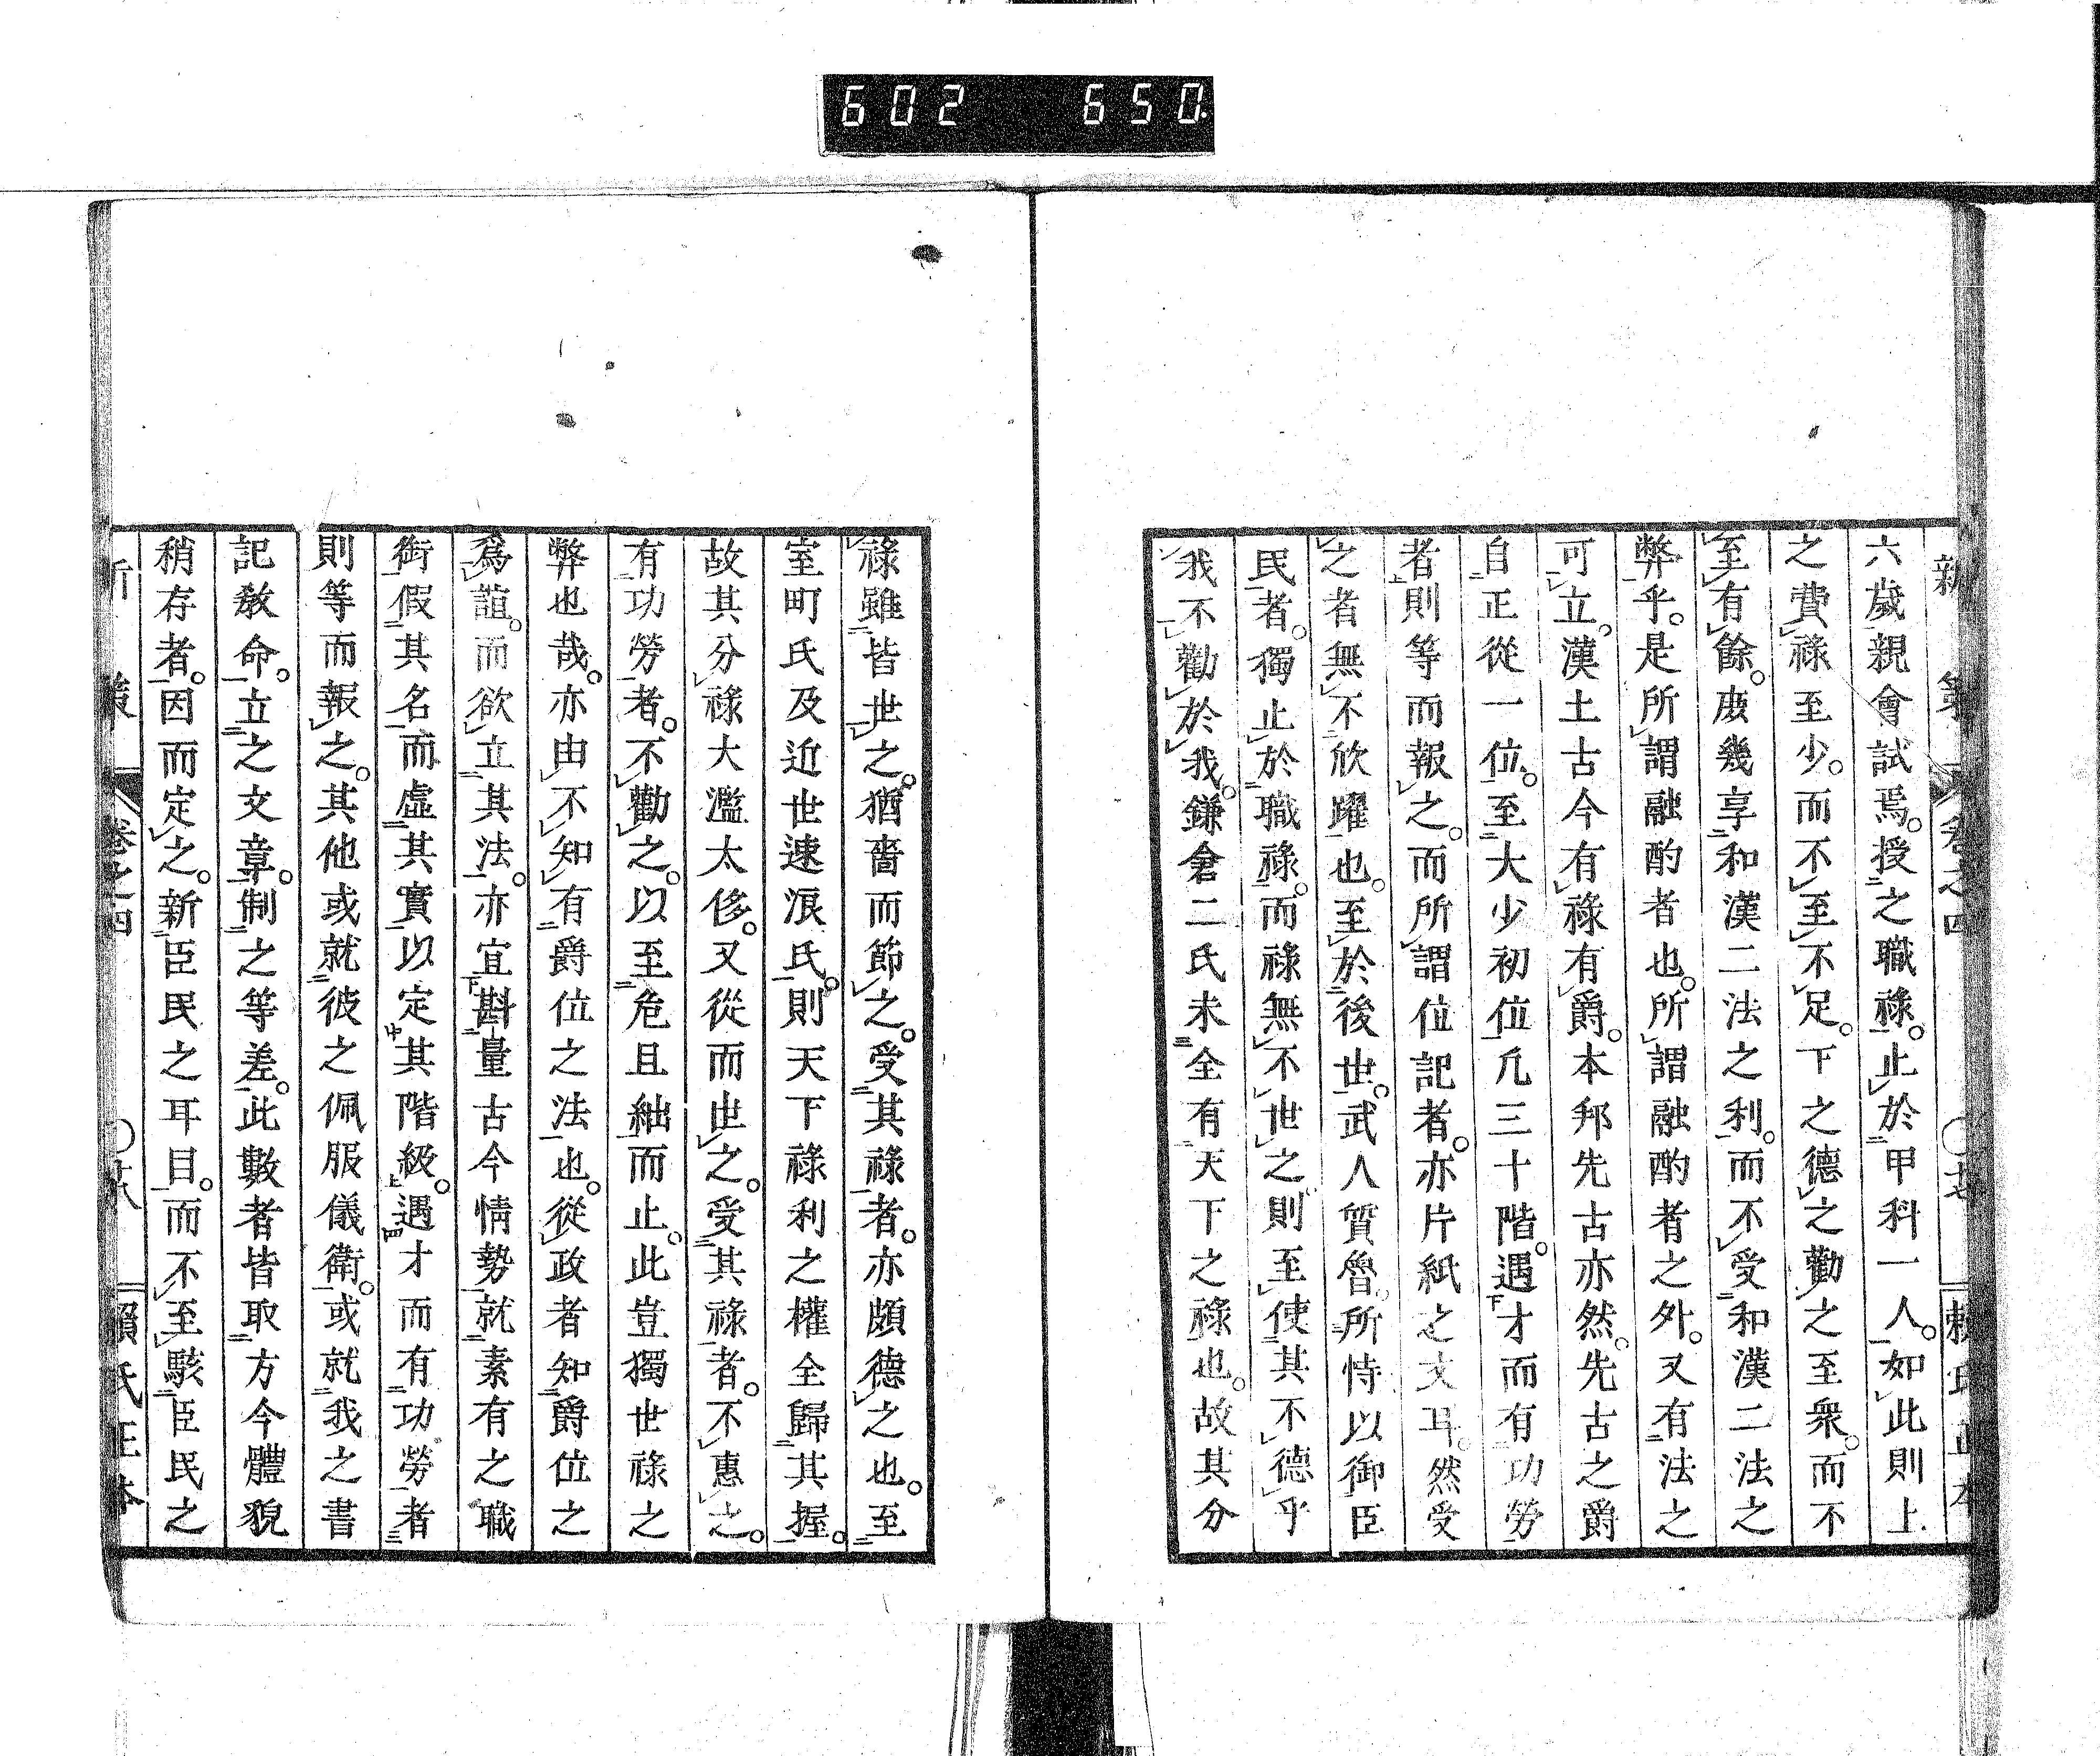 602 650.
新策 卷之四 〇廿七 賴氏正本
六歲親會試焉。授之職祿。止於甲科一人。如此則上
之費祿至少。而不至不足。下之德之勸之至衆。而不
至有餘。庶幾享和漢二法之利。而不受和漢二法之
弊乎。是所謂融酌者也。所謂融酌者之外。又有法之
可立。漢土古今有祿有爵。本邦先古亦然。先古之爵
自正從一位。至大少初位凡三十階。遇才而有功勞
者則等而報之。而所謂位記者。亦片紙之文耳。然受
之者無不欣躍也。至於後世。武人質魯。所恃以御臣
民者。獨止於職祿。而祿無不世之則至使其不德乎
我不勸於我。鎌倉二氏未全有天下之祿也。故其分
祿雖皆世之。猶嗇而節之。受其祿者。亦頗德之也。至
室町氏及近世速浪氏。則天下祿利之權全歸其握。
故其分祿大濫太侈。又從而世之。受其祿者。不惠之。
有功勞者。不勸之。以至危且絀而止。此豈獨世祿之
弊也哉。亦由不知有爵位之法也。從政者知爵位之
爲誼。而欲立其法。亦宜斟量古今情勢就素有之職
銜假其名而虛其實以定其階級。遇才而有功勞者
則等而報之。其他或就彼之佩服儀衛。或就我之書
記敎命。立之文章。制之等差。此數者皆取方今體貌
稍存者。因而定之。新臣民之耳目。而不至駭臣民之
新策 卷之四 〇廿八 賴氏正本